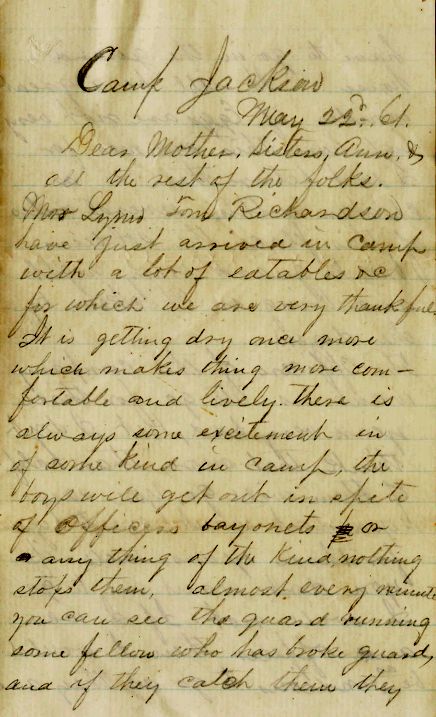 Camp Jackson
May 22d. 61.
Dear Mother, Sisters, Ann. &
all the rest of the folks.
Tom Richardson
have just arrived in camp
with a lot of eatables &c
for which we are very thankful.
It is getting dry once more
which makes thing more com-
fortable and lively. there is
always some excitement in
of some kind in camp, the
boys will get out in spite
of Officers bayonets or
any thing of the kind, nothing
stops them, almost every minute
you can see the guard running
some fellow who has broke guard,
and if they catch them they